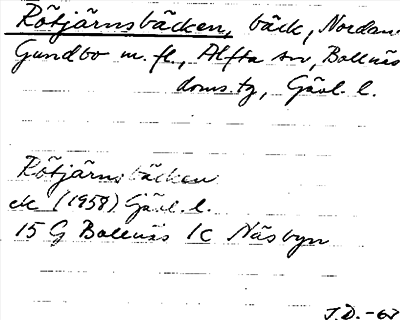 Rötjärnsbäcken, bäck, Nordan
Gundbo m. fl., Alfta sn, Bollnäs
doms.tg, Gävl. l.
Rötjärnsbäcken
ek (1958) Gävl. l.
15 G Bollnäs 1c Näsbyn
J.D. -63